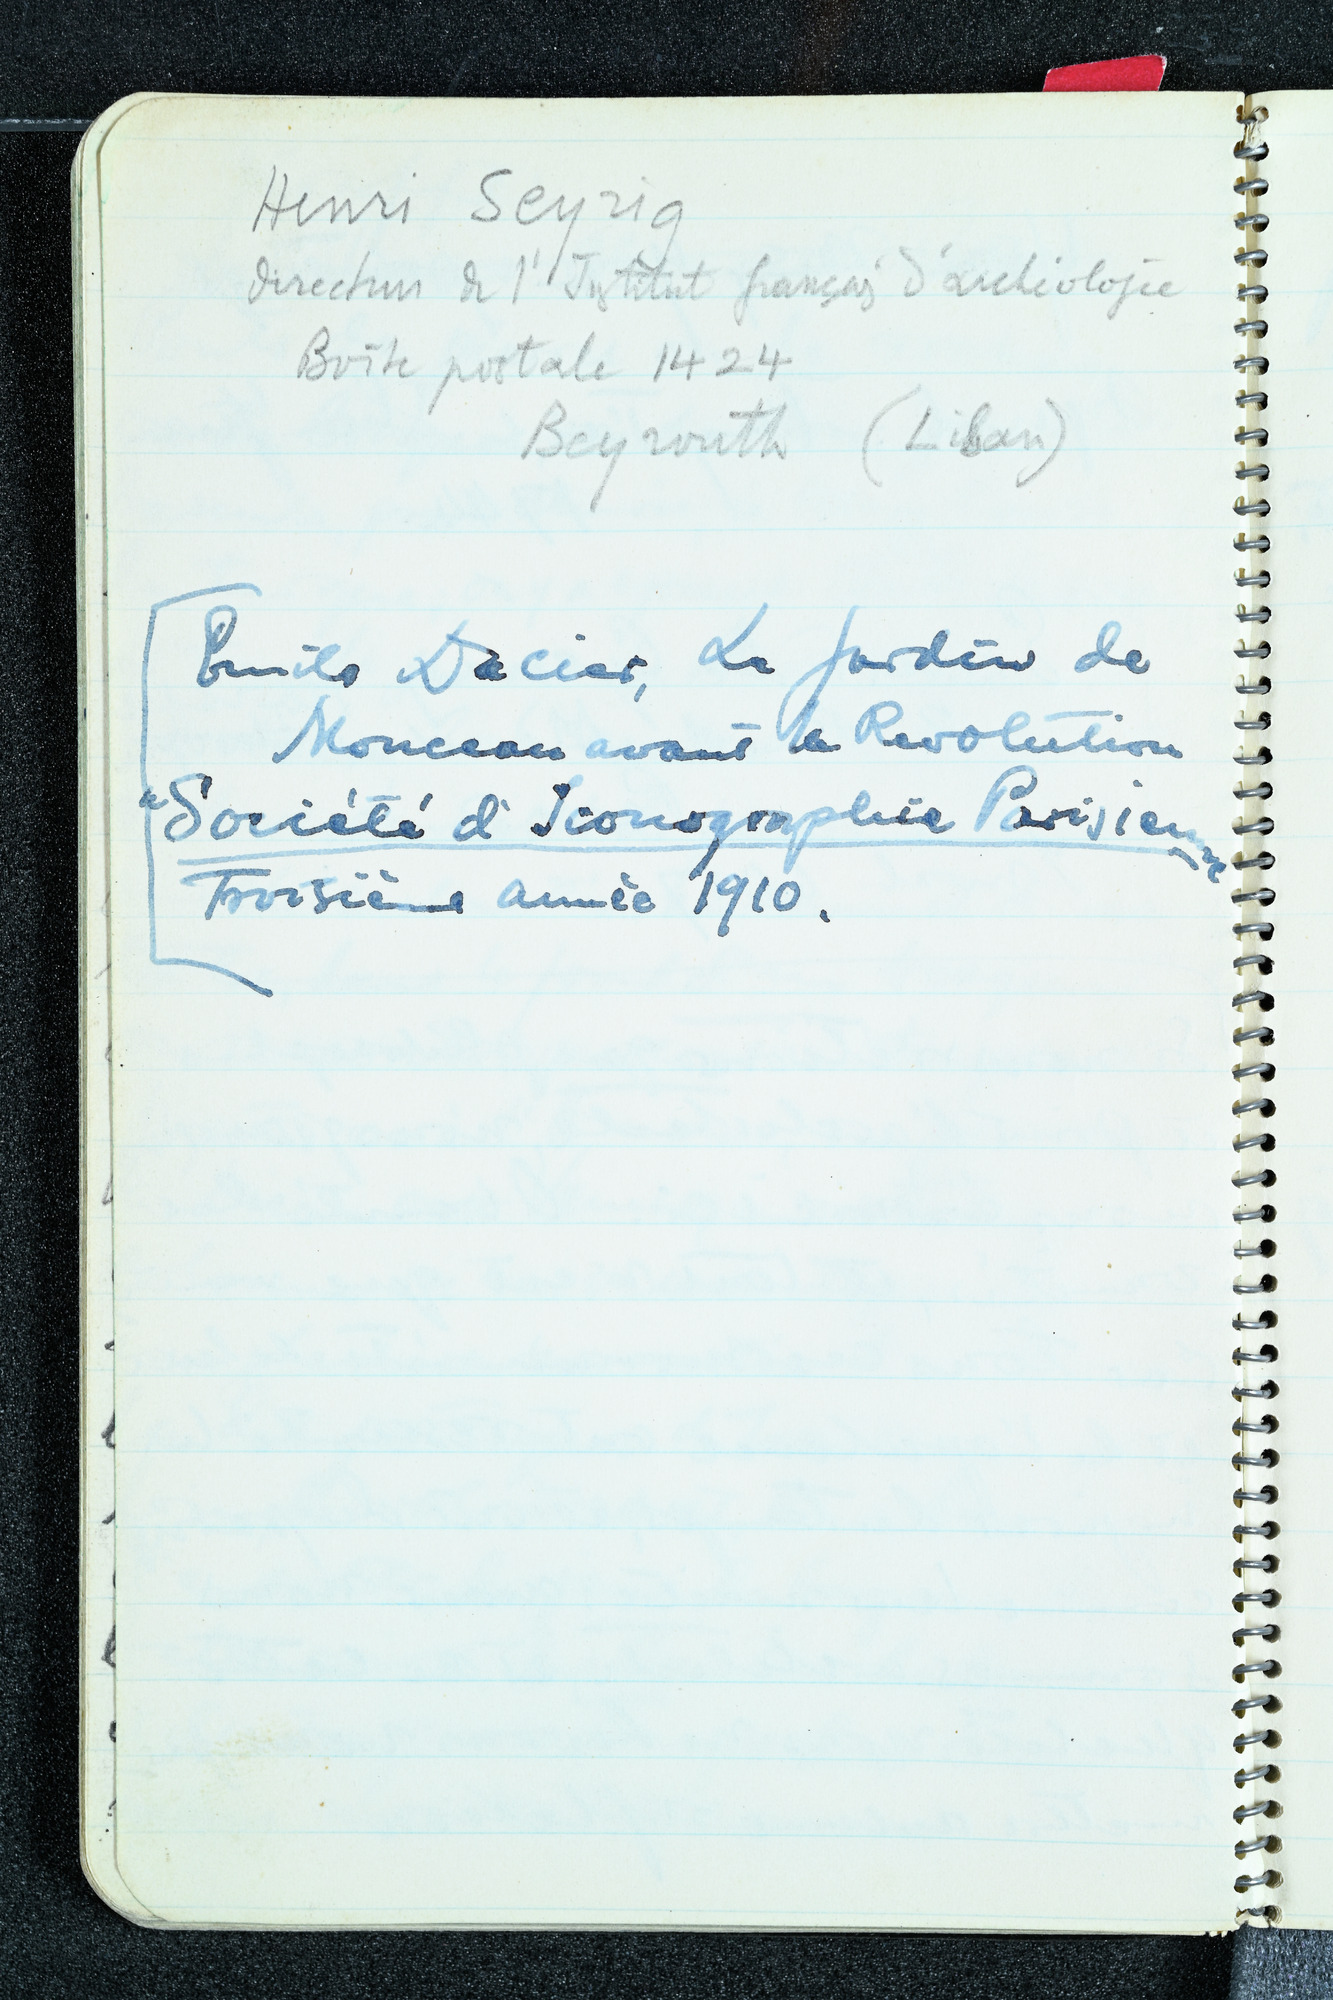 Henri Seyrig
directeur de l'Institut français d'archéologie
Boîte postale 1424
Beyrouth (Liban)
Emile Dacier, Le Jardin de
Monceau avant la Revolution
"Société d'Iconographie Parisienne"
Troisième année 1910.